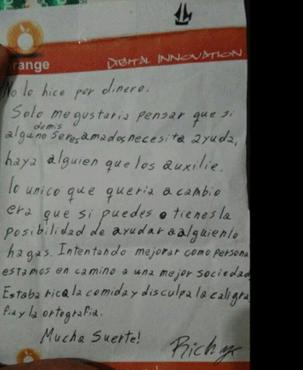 range
DIGITAL INNOVATION
No lo hice por dinero.
Solo me gustaria pensar que si
alguno demis seres amados necesita ayuda,
haya alguien que los auxilie.
lo unico que queria a cambio
era que si puedes o tienes la
posibilidad de ayudar a alguien lo
hagas. Intentando mejorar como persona
estamos en camino a una mejor sociedad
Estaba rica la comida y disculpa la caligra
fia y la ortografia.
Mucha Suerte!